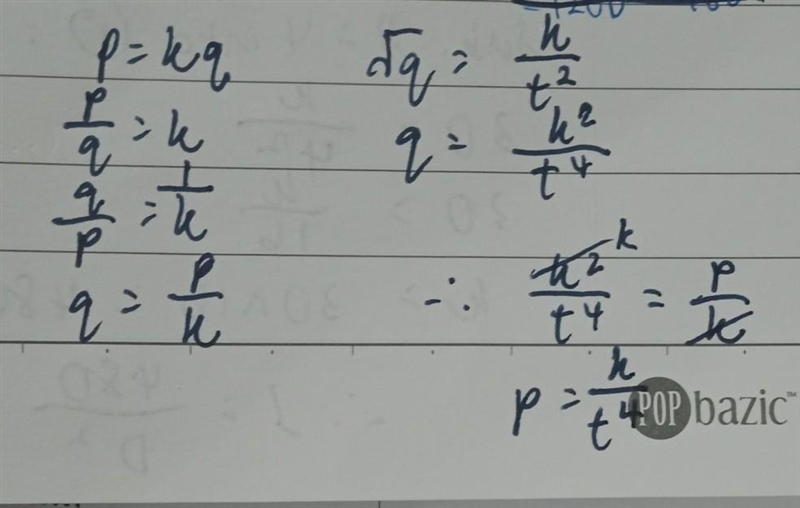 p = kq
p/q = k
q/p = 1/k
q = p/k
√q = k/t²
q = k²/t⁴
∴ k²/t⁴ = p/k
k
p = k/t⁴
POP bazic™